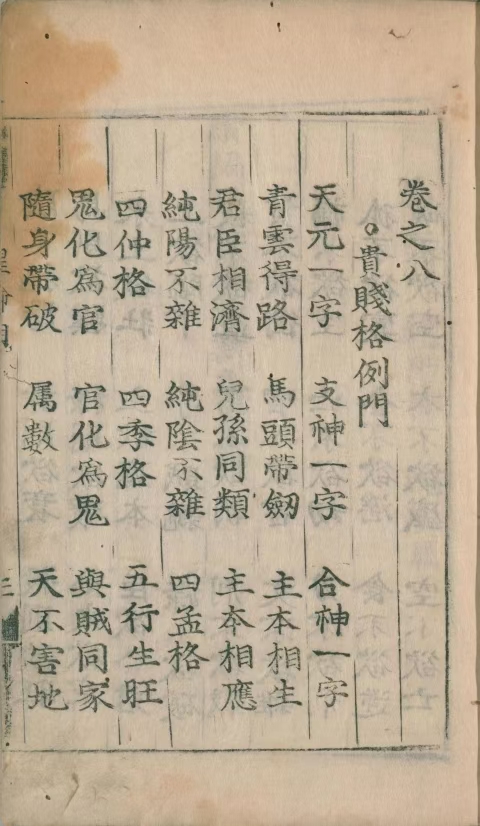 卷之八
○貴賤格例門
天元一字 支神一字 合神一字
青雲得路 馬頭帶劒 主本相生
君臣相濟 兒孫同類 主本相應
純陽不雜 純陰不雜 四孟格
四仲格 四季格 五行生旺
鬼化爲官 官化爲鬼 與賊同家
隨身帶破 属數 天不害地